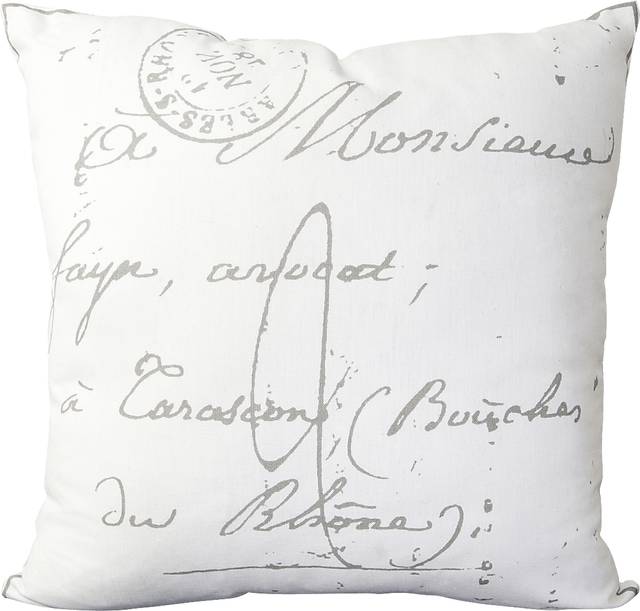 ARLES-S-RHÔ
NOV
À Monsieur
fayn, avocat ;
à Tarascon, (Bouches
du Rhône),